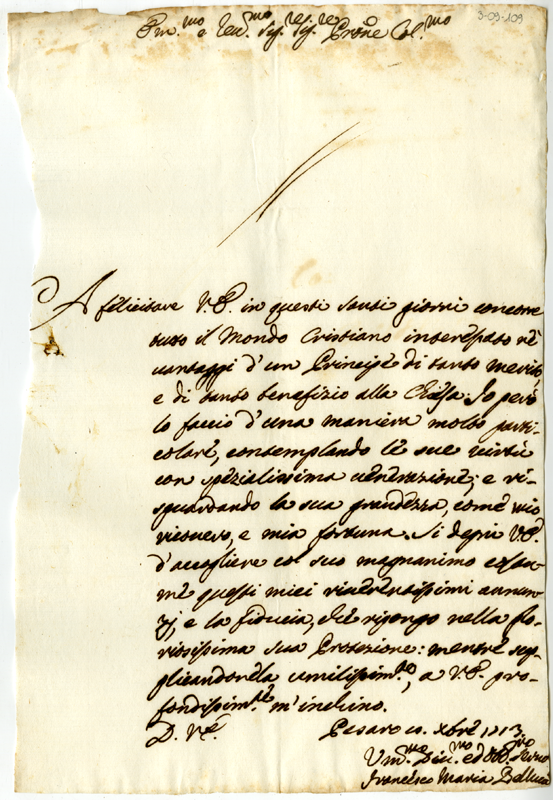 3-09-109
Em.mo e Rev.mo Sig.re Sig.re Prone Col.mo
A felicitare V.E. in questi santi giorni concorre
tutto il Mondo Cristiano interessato ne'
vantaggi d'un Principe di tanto merito
e di tanto benefizio alla Chiesa. Io però
lo faccio d'una maniera molto parti-
colare, contemplando le sue virtù
con spezialissima venerazione; e ri-
sguardando la sua grandezza, come mio
ricovero, e mia fortuna. Si degni V.E.
d'accogliere col suo magnanimo
me questi miei riverentissimi annun-
zj, e la fiducia, che ripongo nella
sua Protezione: mentre sup-
plicandonela umilissim.te, a V.E. pro-
fondissim.te m'inchino.
D. V.E. Pesaro 10. Xbre 1713
Um.mo Div.mo ed Obb.mo Servo
Francesco Maria Belluzzi